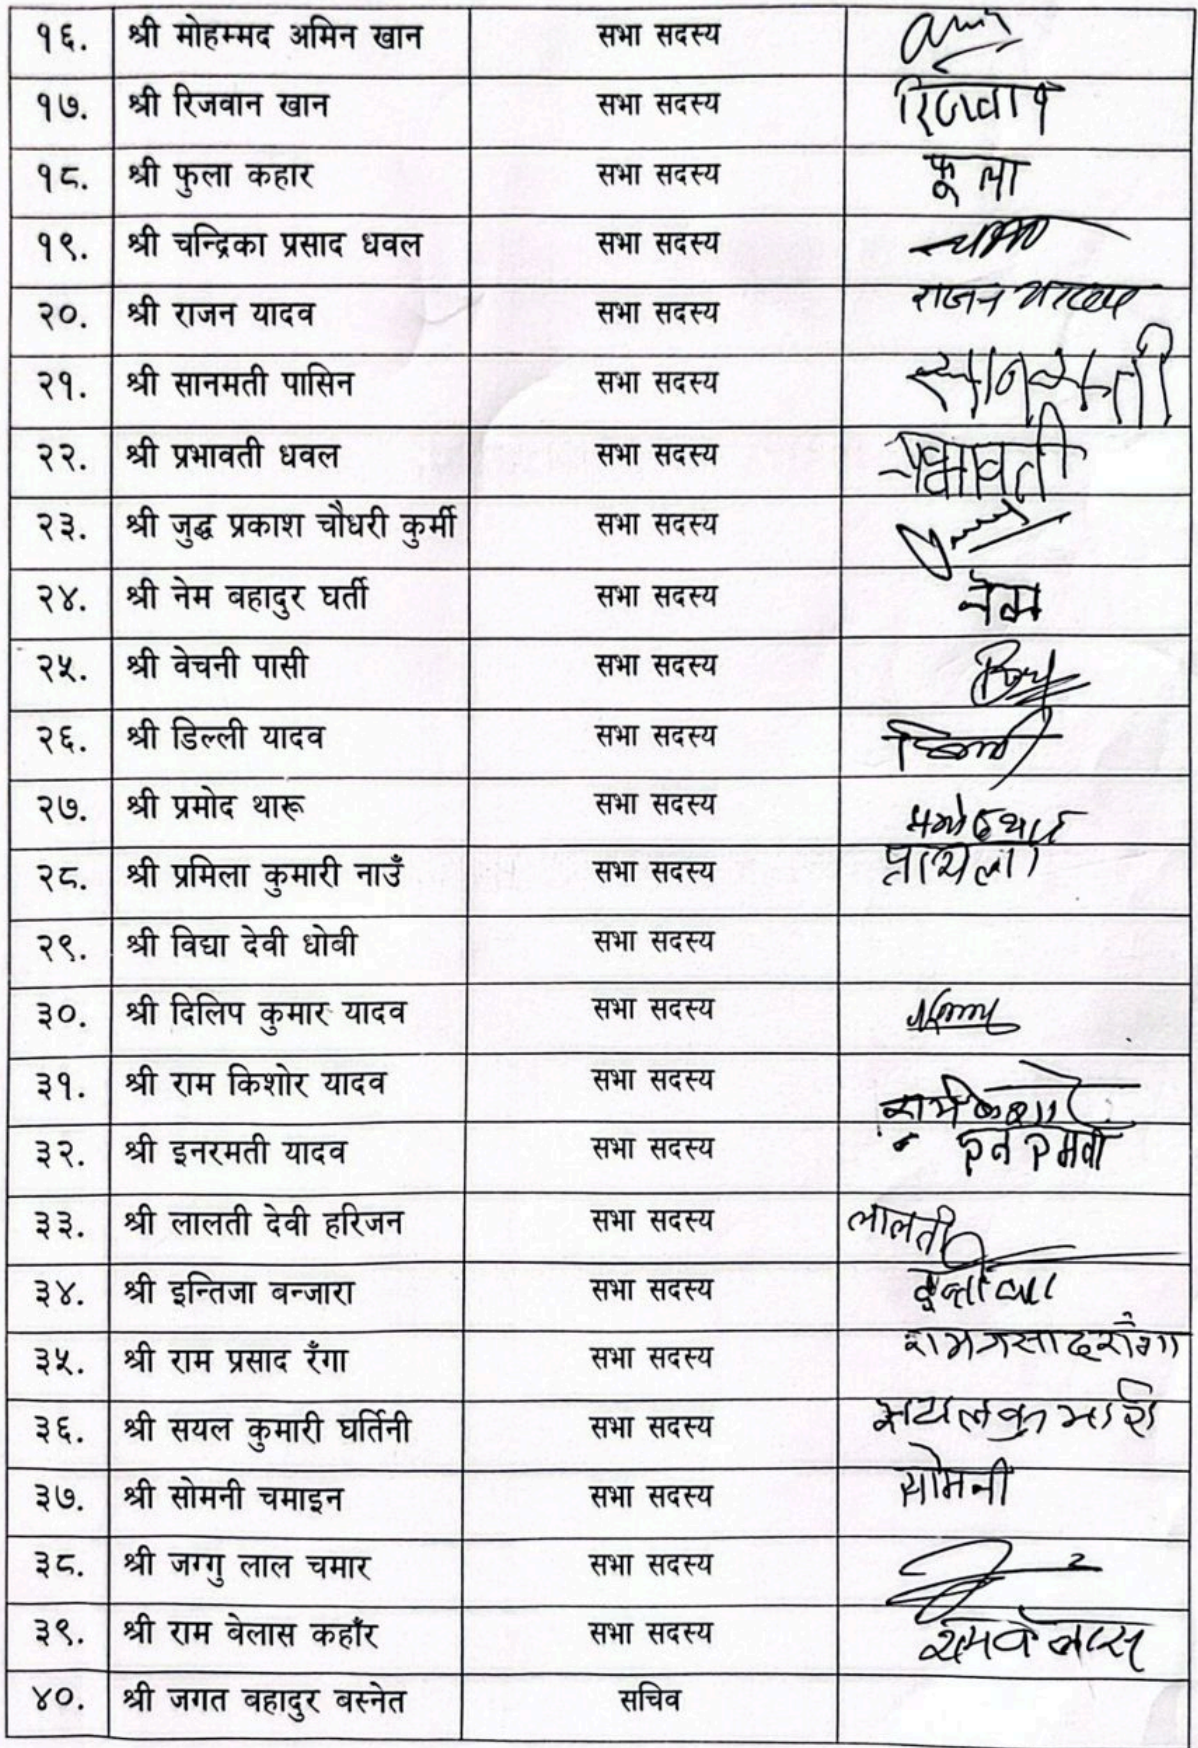 १६. श्री मोहम्मद अमिन खान सभा सदस्य
१७. श्री रिजवान खान सभा सदस्य रिजवान
१८. श्री फुला कहार सभा सदस्य फूला
१९. श्री चन्द्रिका प्रसाद धवल सभा सदस्य
२०. श्री राजन यादव सभा सदस्य राजन यादव
२१. श्री सानमती पासिन सभा सदस्य सानमती
२२. श्री प्रभावती धवल सभा सदस्य प्रभावती
२३. श्री जुद्ध प्रकाश चौधरी कुर्मी सभा सदस्य
२४. श्री नेम बहादुर घर्ती सभा सदस्य नेम
२५. श्री वेचनी पासी सभा सदस्य
२६. श्री डिल्ली यादव सभा सदस्य
२७. श्री प्रमोद थारू सभा सदस्य
२८. श्री प्रमिला कुमारी नाउँ सभा सदस्य
२९. श्री विद्या देवी धोबी सभा सदस्य
३०. श्री दिलिप कुमार यादव सभा सदस्य
३१. श्री राम किशोर यादव सभा सदस्य
३२. श्री इनरमती यादव सभा सदस्य
३३. श्री लालती देवी हरिजन सभा सदस्य लालती
३४. श्री इन्तिजा बन्जारा सभा सदस्य
३५. श्री राम प्रसाद रँगा सभा सदस्य
३६. श्री सयल कुमारी घर्तिनी सभा सदस्य सयलकुमारी
३७. श्री सोमनी चमाइन सभा सदस्य सोमनी
३८. श्री जग्गु लाल चमार सभा सदस्य
३९. श्री राम बेलास कहाँर सभा सदस्य
४०. श्री जगत बहादुर बस्नेत सचिव